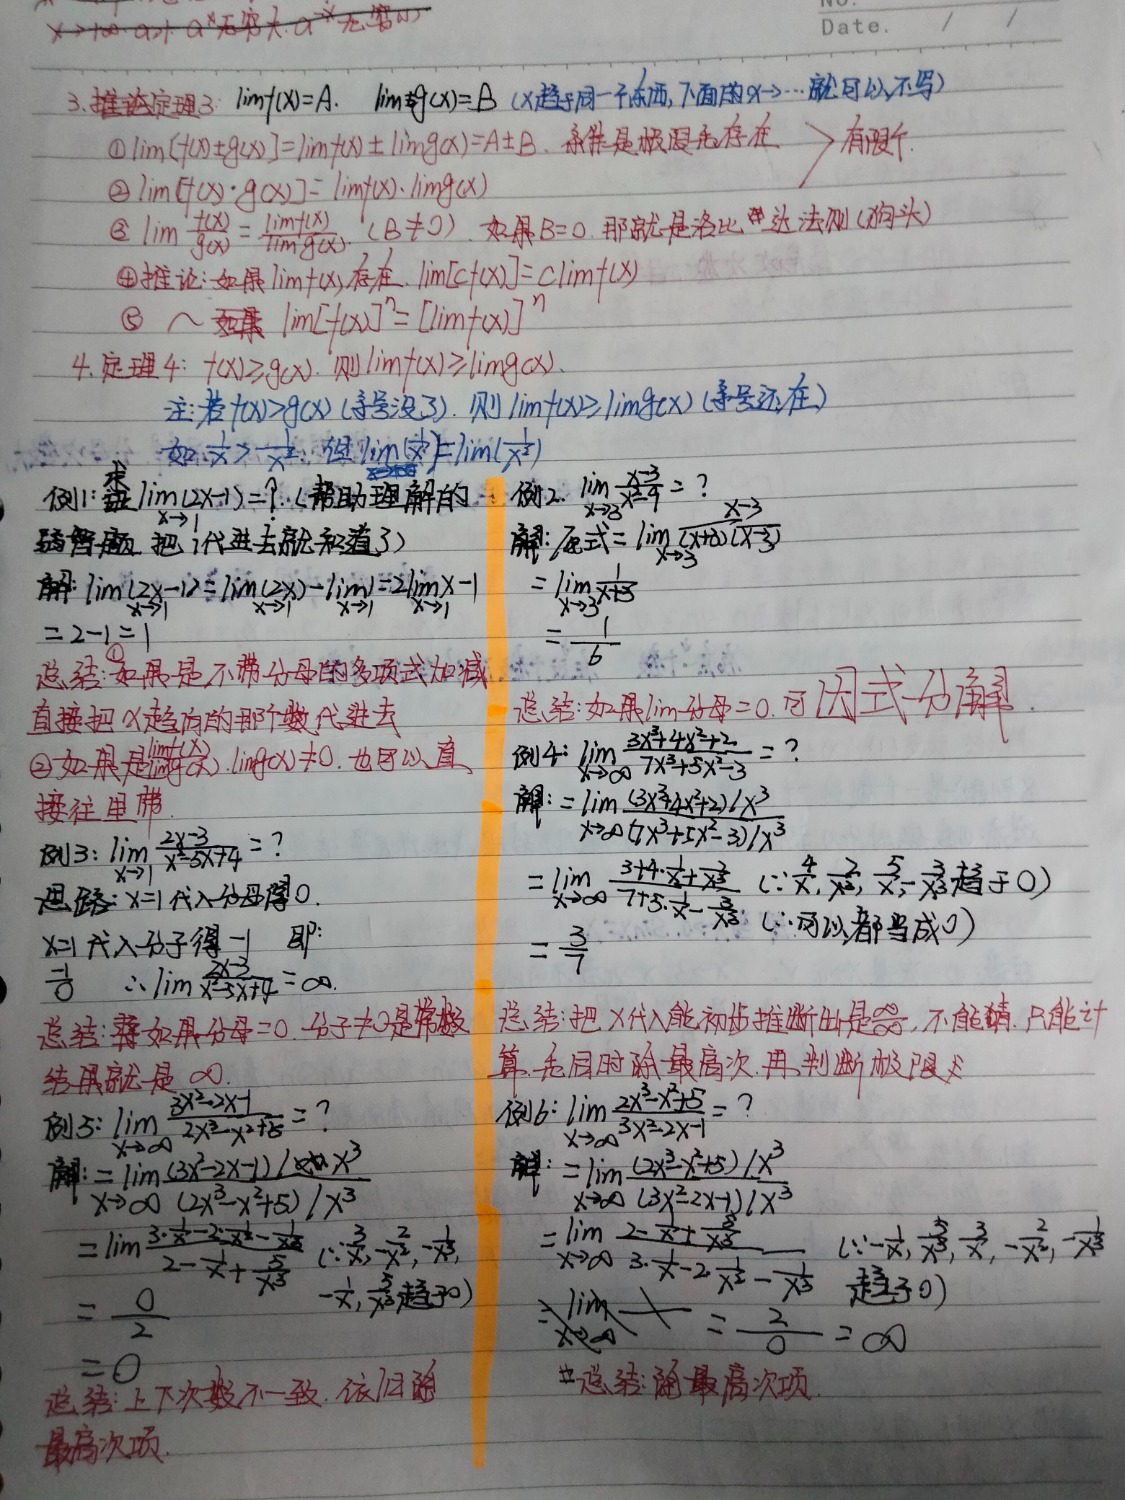 x→+∞ a>1 a^x无穷大 a^-x无穷小
No.
Date. / /
3.推论定理3: limf(x)=A. limg(x)=B (x趋于同一个东西,下面的x→…就可以不写)
①lim[f(x)±g(x)]=limf(x)±limg(x)=A±B. 条件是极限先存在 > 有限个
②lim[f(x)·g(x)]=limf(x)·limg(x)
③lim f(x)/g(x) = limf(x)/limg(x). (B≠0). 如果B=0.那就是洛比达法则(狗头)
④推论:如果limf(x)存在. lim[cf(x)]=climf(x)
⑤ ～ 如果 lim[f(x)]^n=[limf(x)]^n
4.定理4: f(x)≥g(x).则limf(x)≥limg(x).
注:若f(x)>g(x)(等号没了).则limf(x)≥limg(x)(等号还在)
如 1/x > 1/x². 但lim(1/x)=lim(1/x²)
例1:求lim(2x-1)=?.(帮助理解的
x→1
弱智题 把1代进去就知道了)
解:lim(2x-1)=lim(2x)-lim1=2limx-1
x→1 x→1 x→1 x→1
=2-1=1
总结:①如果是不带分母的多项式加减
直接把x趋向的那个数代进去
②如果是limf(x)/limg(x).limg(x)≠0.也可以直
接往里带.
例3:lim (2x-3)/(x²-5x+4)=?
x→1
思路:x=1代入分母得0.
x=1代入分子得-1 即:
-1/0 ∴lim (2x-3)/(x²-5x+4)=∞.
总结:如果分母=0.分子≠0是常数
结果就是∞.
例5:lim (3x²-2x-1)/(2x³-x²+5)=?
x→∞
解:=lim (3x²-2x-1)/x³
x→∞ (2x³-x²+5)/x³
=lim (3·1/x-2·1/x²-1/x³)/(2-1/x+5/x³) (∵3/x,-2/x²,-1/x³,
-1/x,5/x³趋于0)
=0/2
=0
总结:上下次数不一致.依旧除
最高次项.
例2.lim (x-3)/(x²-9)=?
x→3
解:原式=lim (x-3)/((x+3)(x-3))
x→3
=lim 1/(x+3)
x→3
=1/6
总结:如果lim分母=0.可因式分解.
例4:lim (3x³+4x²+2)/(7x³+5x²-3)=?
x→∞
解:=lim (3x³+4x²+2)/x³
x→∞ (7x³+5x²-3)/x³
=lim (3+4·1/x+2/x³)/(7+5·1/x-3/x³) (∵4/x,2/x³,5/x,-3/x³趋于0)
x→∞ (∴可以都当成0)
=3/7
总结:把x代入能初步推断出是∞/∞,不能猜.只能计
算.先同时除最高次.再判断极限
例6:lim (2x³-x²+5)/(3x²-2x-1)=?
x→∞
解:=lim (2x³-x²+5)/x³
x→∞ (3x²-2x-1)/x³
=lim (2-1/x+5/x³)/(3·1/x-2·1/x²-1/x³) (∵-1/x,5/x³,3/x,-2/x²,-1/x³
x→∞ 趋于0)
=lim =2/0=∞
x→∞
总结:除最高次项.